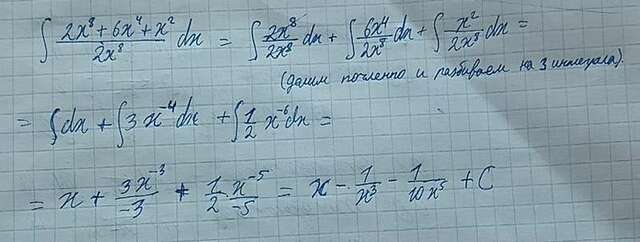 ∫ (2x⁸ + 6x⁴ + x²)/(2x⁸) dx = ∫ 2x⁸/2x⁸ dx + ∫ 6x⁴/2x⁸ dx + ∫ x²/2x⁸ dx =
(делим почленно и разбиваем на 3 интеграла).
= ∫ dx + ∫ 3x⁻⁴ dx + ∫ 1/2 x⁻⁶ dx =
= x + 3x⁻³/−3 + 1/2 · x⁻⁵/−5 = x − 1/x³ − 1/10x⁵ + C